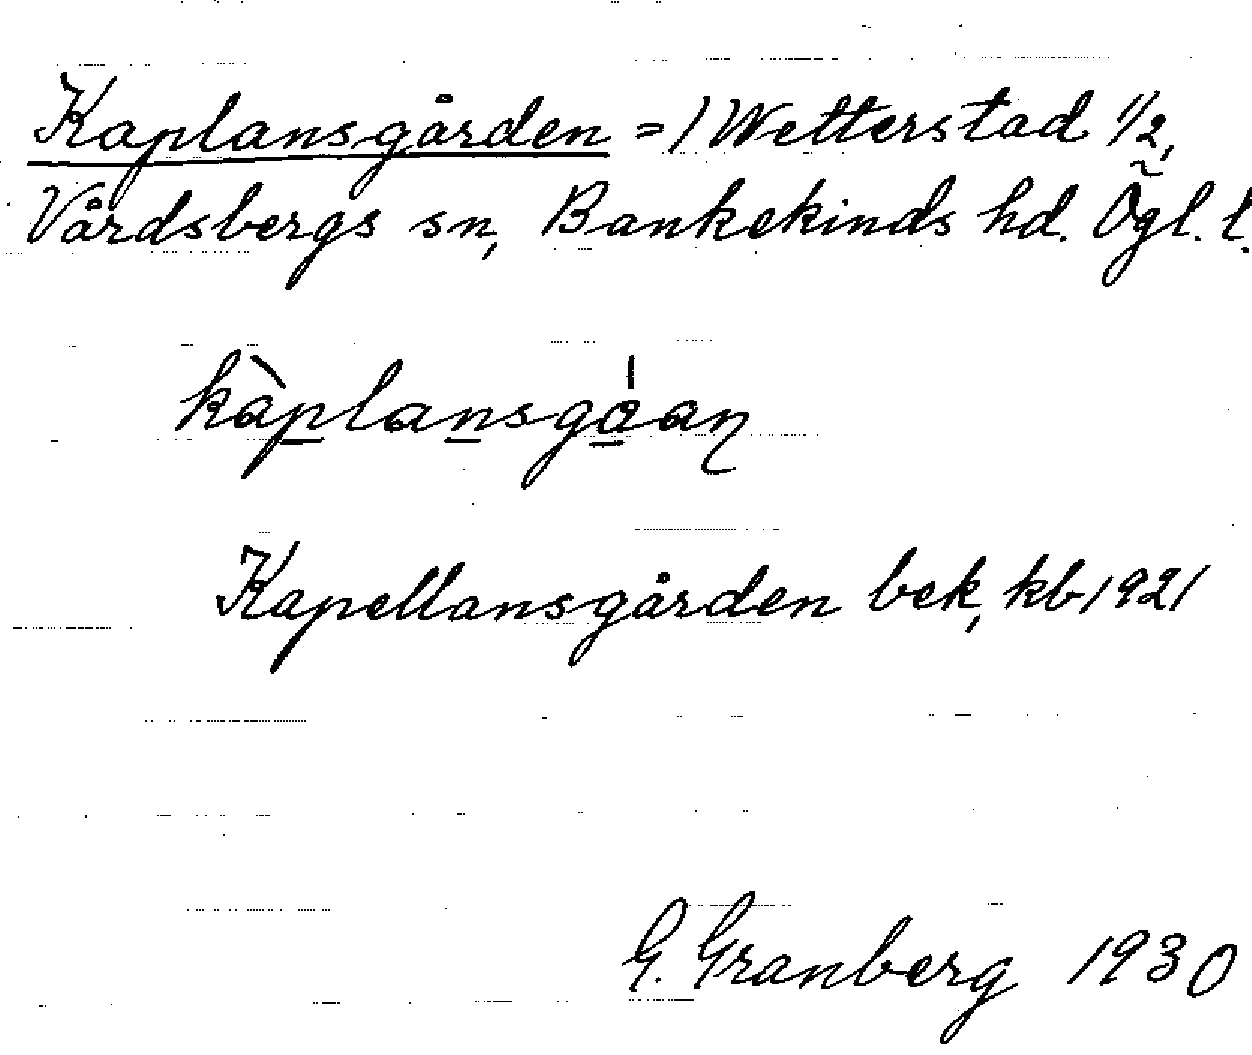 Kaplansgården = 1 Wetterstad 1/2,
Vårdsbergs sn, Bankekinds hd. Ögl. l.
kàplansgåan
Kapellansgården bek, kb 1921
G. Granberg 1930